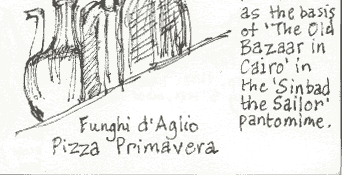 as the basis
of 'The Old
Bazaar in
Cairo' in
the 'Sinbad
the Sailor'
pantomime.
Funghi d'Aglio
Pizza Primavera